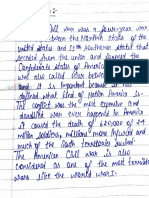 Civil war was a four-year war
between the Northern states of the
United states and 11th Southern stated that
seceded from the union and formed the
Confederate states of America
war also called War between
and it is important because it has
defined what kind of Nation America is.
The conflict was the most expensive and
deadliest war ever happened to America
it caused the death of 620,000 of 2.4
million soldiers, millions more injured and
much of the South territories
The American Civil war is also
considered as one of the most terrible
wars like the world war I.